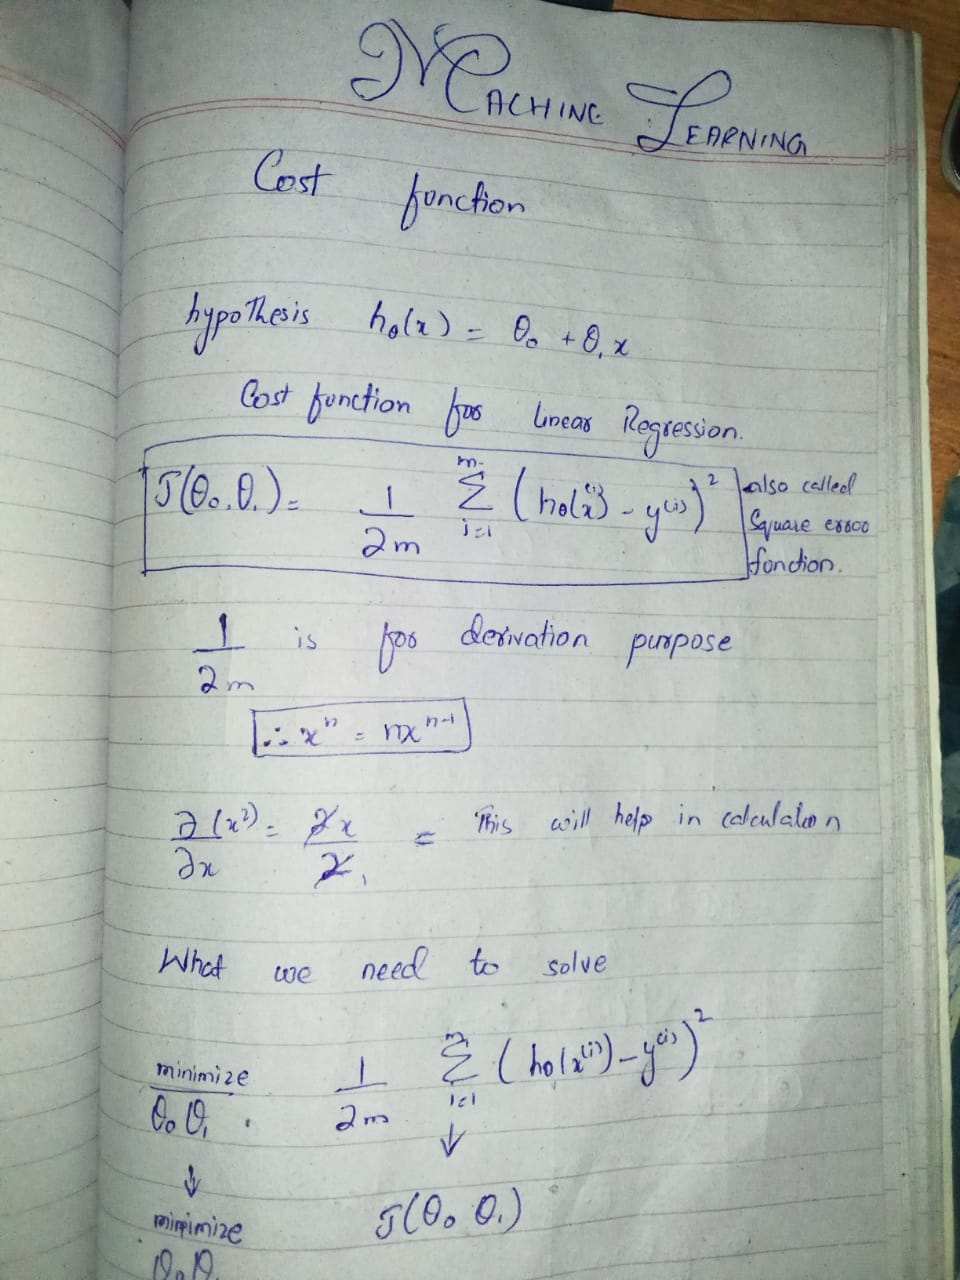 MACHINE LEARNING
Cost function
hypothesis hθ(x) = θ₀ + θ₁x
Cost function for linear Regression.
J(θ₀,θ₁) = 1/2m Σᵢ₌₁ᵐ (hθ(x⁽ⁱ⁾) - y⁽ⁱ⁾)²
also called
Square error
function.
1/2m is for derivation purpose
∴ xⁿ = nxⁿ⁻¹
∂(x²)/∂x = 2x/2 = This will help in calculation
What we need to solve
minimize θ₀ θ₁ . 1/2m Σᵢ₌₁ᵐ (hθ(x⁽ⁱ⁾) - y⁽ⁱ⁾)²
↓ ↓
minimize J(θ₀ θ₁)
θ₀ θ₁